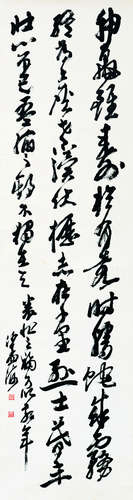 神龜雖壽猶有竟時騰蛇乘霧
終為土灰老驥伏櫪志在千里烈士暮年
壯心不已盈縮之期不獨在天養怡之福可得永年
沙孟海